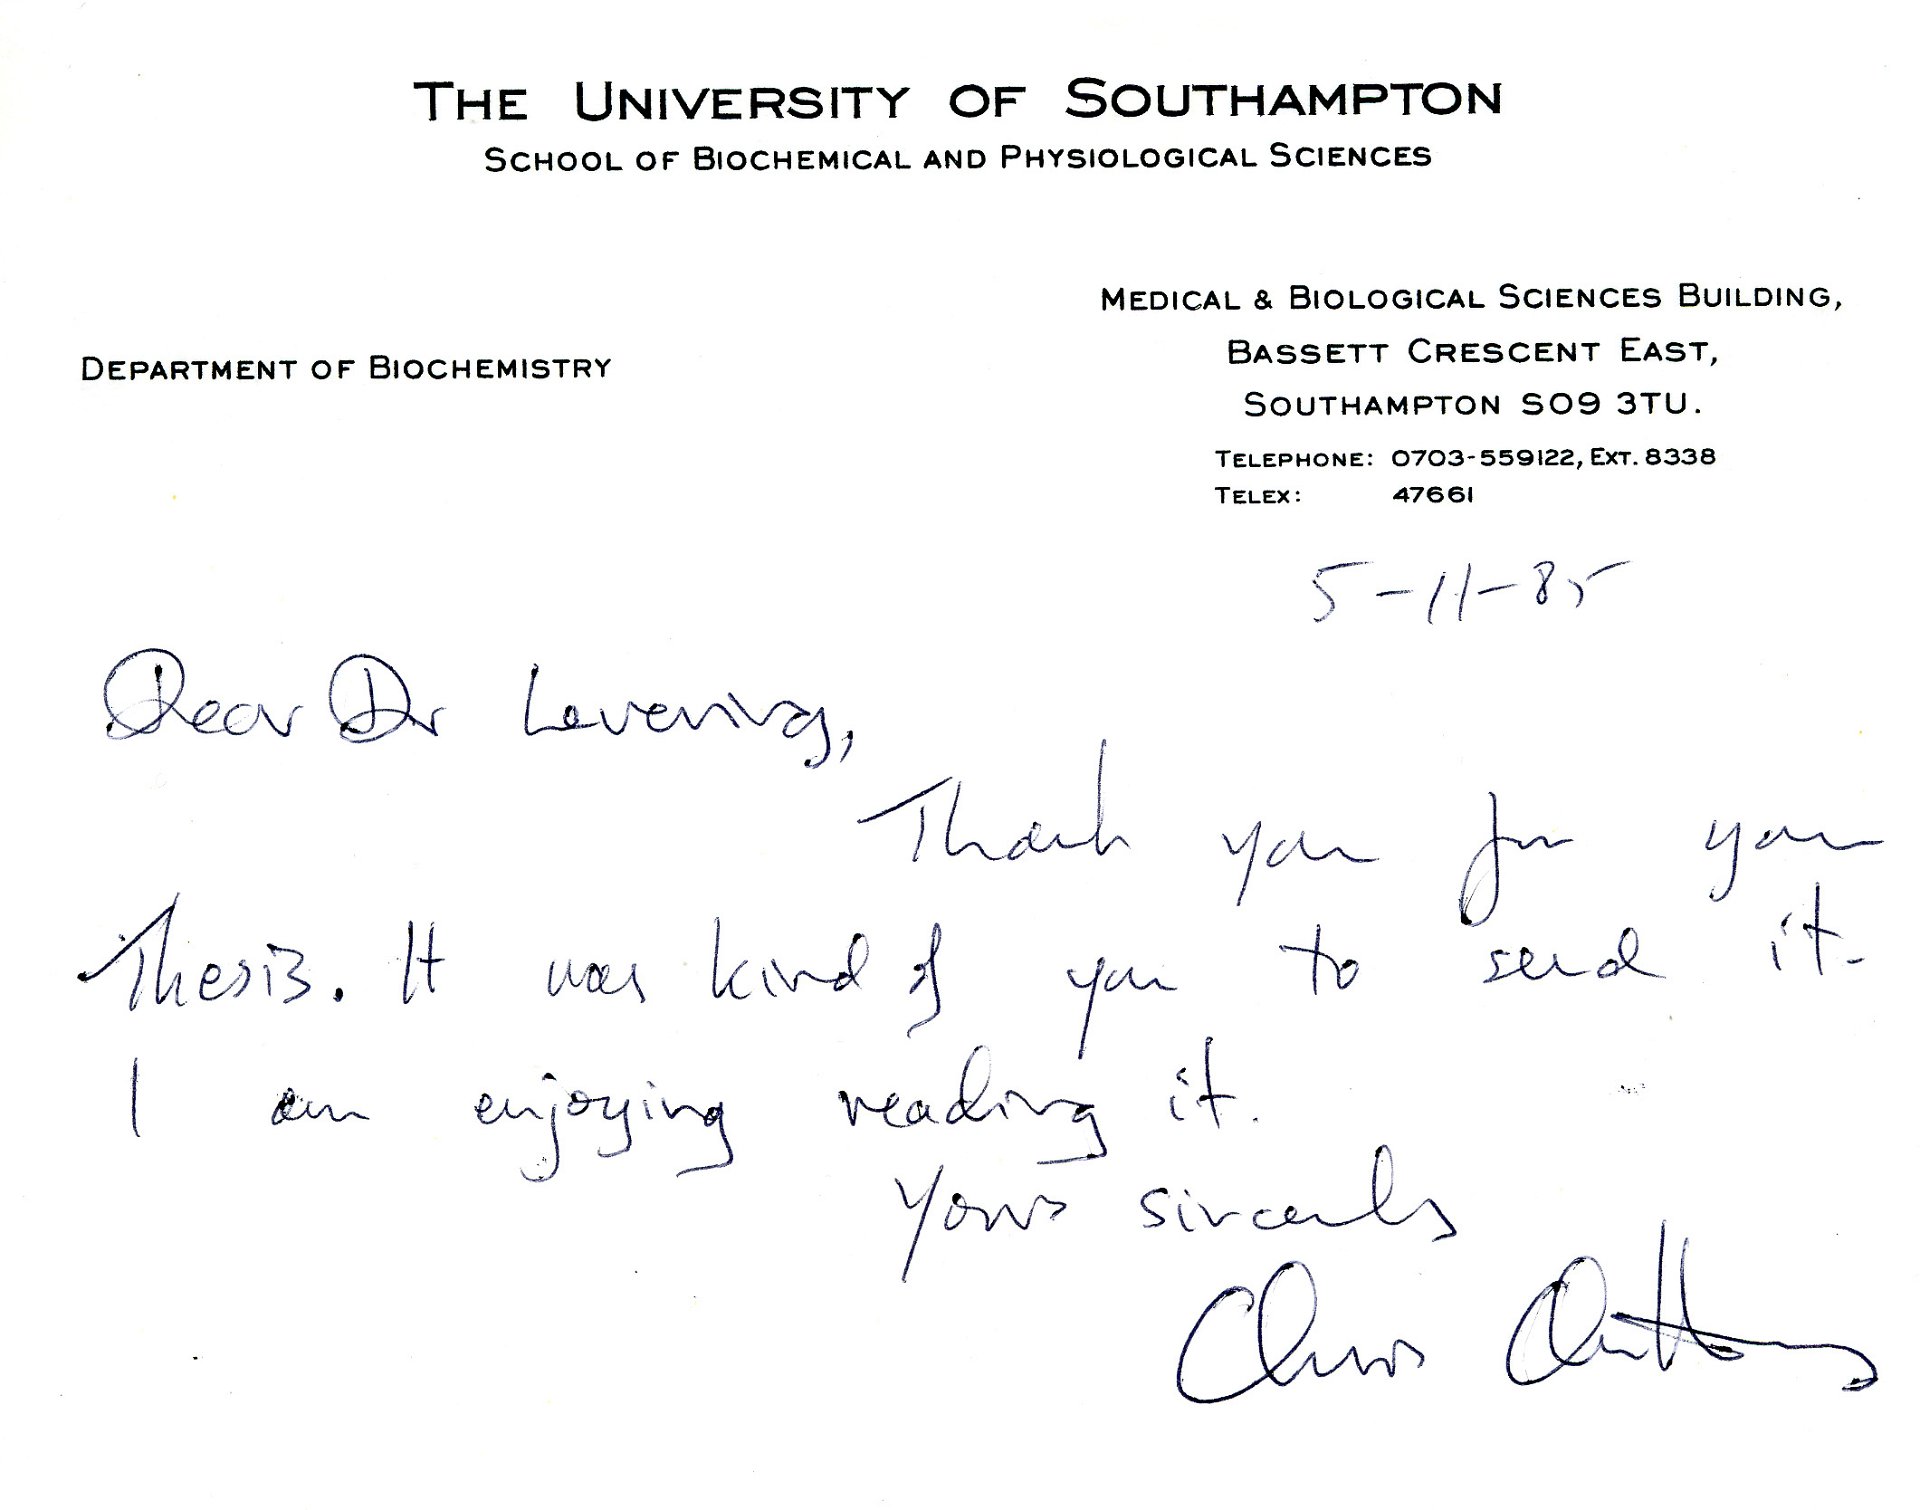 THE UNIVERSITY OF SOUTHAMPTON
SCHOOL OF BIOCHEMICAL AND PHYSIOLOGICAL SCIENCES
MEDICAL & BIOLOGICAL SCIENCES BUILDING,
BASSETT CRESCENT EAST,
DEPARTMENT OF BIOCHEMISTRY
SOUTHAMPTON SO9 3TU.
TELEPHONE: 0703-559122, EXT. 8338
TELEX: 47661
5-11-85
Dear Dr Levering,
Thank you for your
Thesis. It was kind of you to send it.
I am enjoying reading it.
Yours sincerely
Chris Anthony